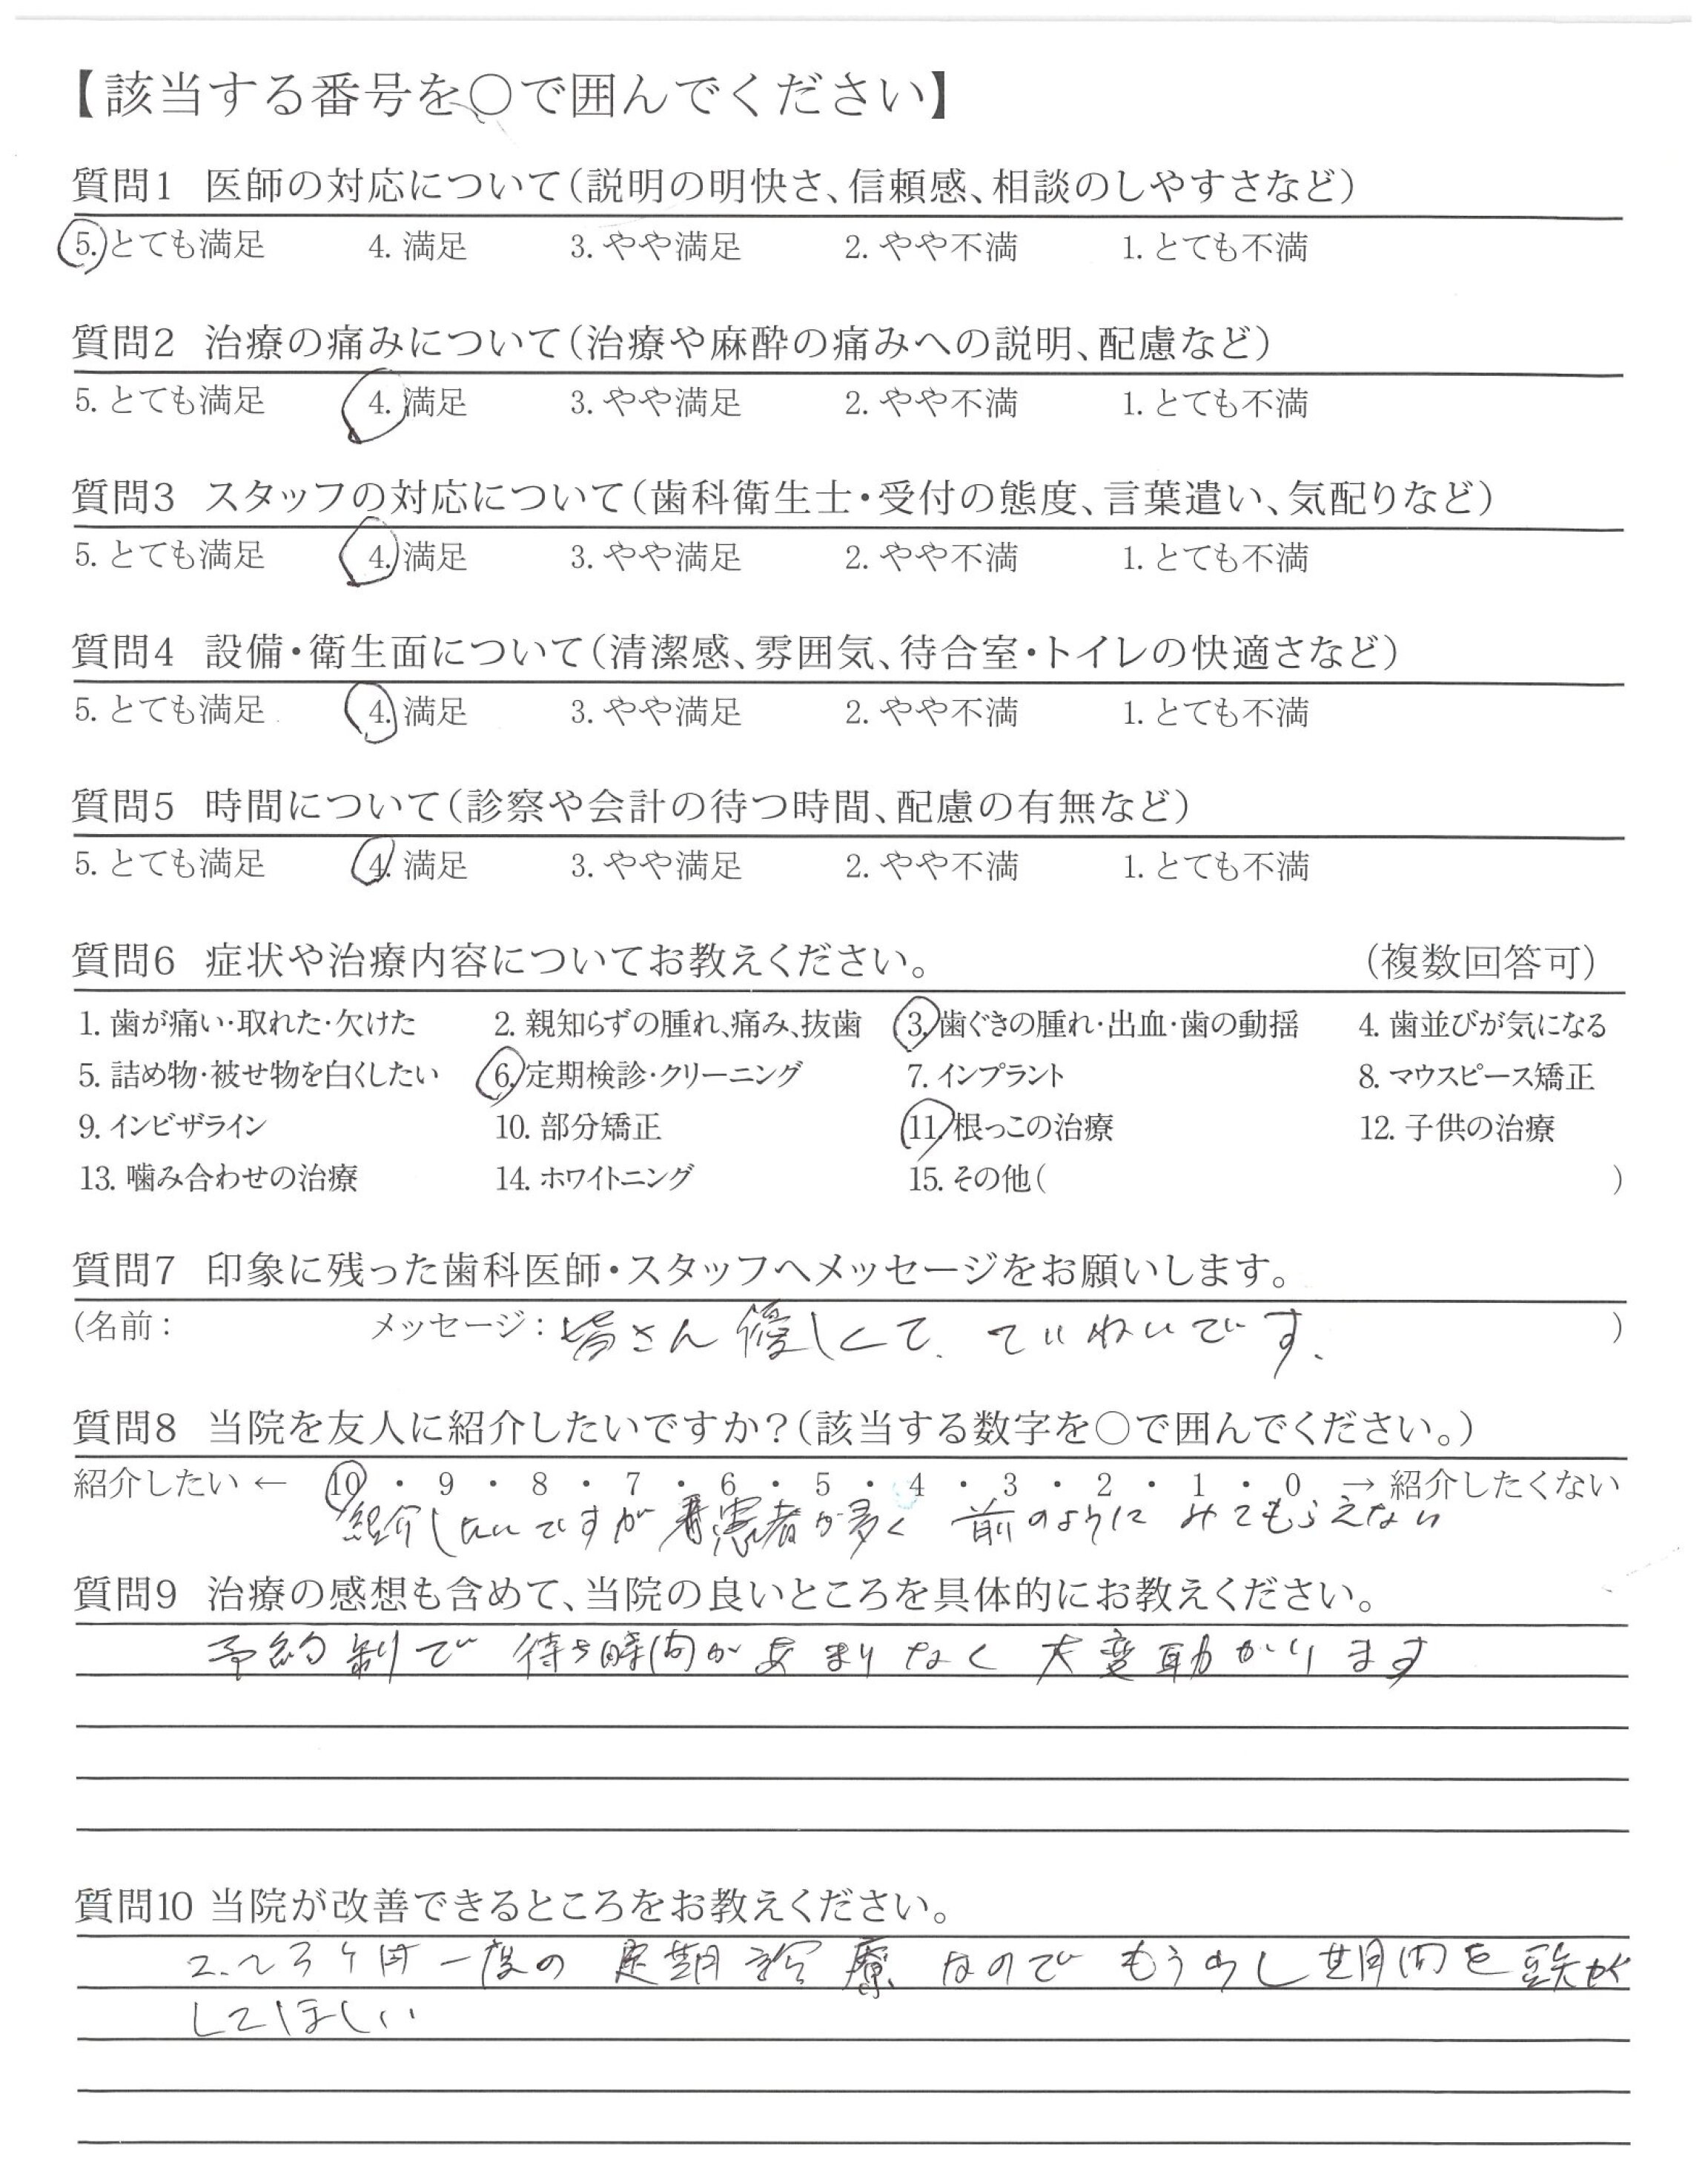 【該当する番号を○で囲んでください】
質問1 医師の対応について(説明の明快さ、信頼感、相談のしやすさなど)
5. とても満足 4. 満足 3. やや満足 2. やや不満 1. とても不満
質問2 治療の痛みについて(治療や麻酔の痛みへの説明、配慮など)
5. とても満足 4. 満足 3. やや満足 2. やや不満 1. とても不満
質問3 スタッフの対応について(歯科衛生士・受付の態度、言葉遣い、気配りなど)
5. とても満足 4. 満足 3. やや満足 2. やや不満 1. とても不満
質問4 設備・衛生面について(清潔感、雰囲気、待合室・トイレの快適さなど)
5. とても満足 4. 満足 3. やや満足 2. やや不満 1. とても不満
質問5 時間について(診察や会計の待つ時間、配慮の有無など)
5. とても満足 4. 満足 3. やや満足 2. やや不満 1. とても不満
質問6 症状や治療内容についてお教えください。 (複数回答可)
1. 歯が痛い・取れた・欠けた 2. 親知らずの腫れ、痛み、抜歯 3. 歯ぐきの腫れ・出血・歯の動揺 4. 歯並びが気になる
5. 詰め物・被せ物を白くしたい 6. 定期検診・クリーニング 7. インプラント 8. マウスピース矯正
9. インビザライン 10. 部分矯正 11. 根っこの治療 12. 子供の治療
13. 噛み合わせの治療 14. ホワイトニング 15. その他( )
質問7 印象に残った歯科医師・スタッフへメッセージをお願いします。
(名前: メッセージ: 皆さん優しくて、ていねいです。 )
質問8 当院を友人に紹介したいですか?(該当する数字を○で囲んでください。)
紹介したい ← 10 ・ 9 ・ 8 ・ 7 ・ 6 ・ 5 ・ 4 ・ 3 ・ 2 ・ 1 ・ 0 → 紹介したくない
紹介したいですが 患者が多く 前のように みてもらえない
質問9 治療の感想も含めて、当院の良いところを具体的にお教えください。
予約制で 待ち時間があまりなく 大変助かります
質問10 当院が改善できるところをお教えください。
2.~3ヶ月一度の 定期診療なので もう少し期間を短か
してほしい